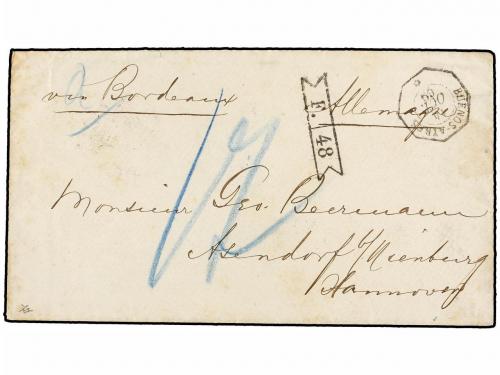 via Bordeaux
Allemagne
BUENOS-AYRES
F. 48
Monsieur Geo. Beermann
Asendorf b/Nienburg
Hannover